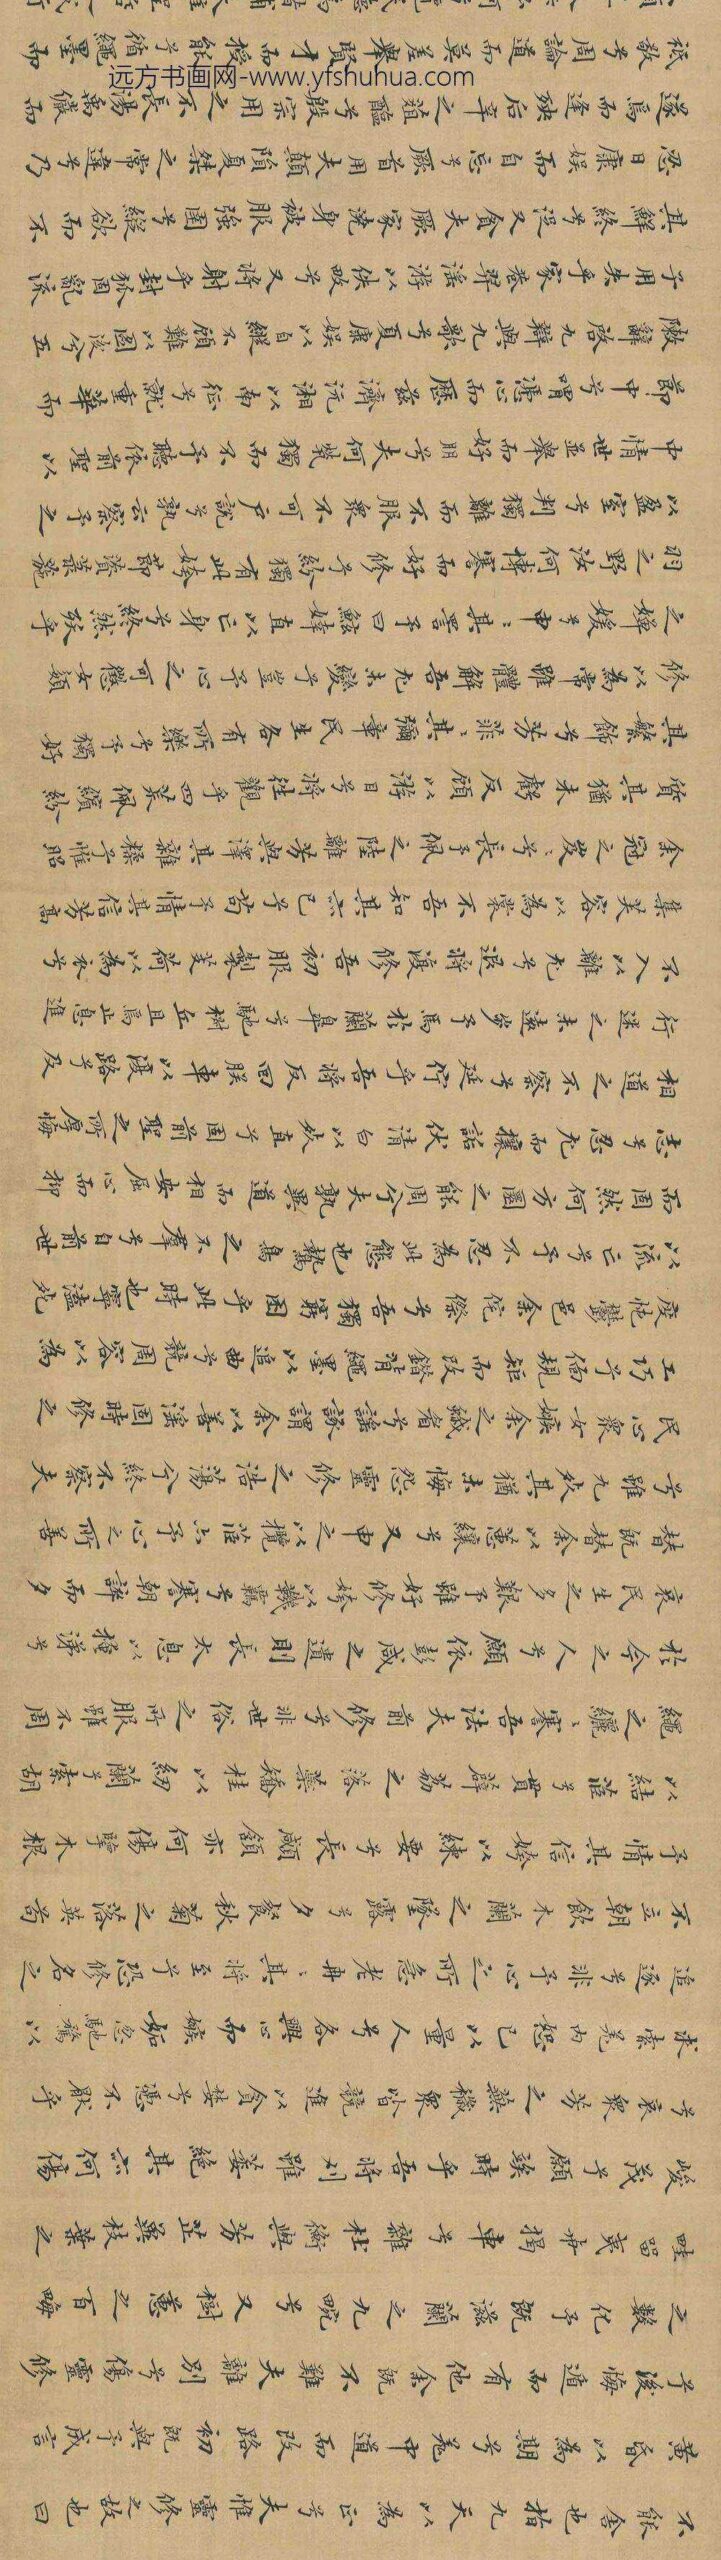 不能舍也指九天以為正兮夫惟靈修之故也曰
黃昏以為期兮羌中道而改路初既與予成言
予後悔遁而有他余既不難夫離別兮傷靈修
之數化予既滋蘭之九畹兮又樹蕙之百畮
畦留夷與揭車兮雜杜衡與芳芷冀枝葉之
峻茂予願竢時乎吾將刈雖萎絕其亦何傷
兮哀衆芳之蕪穢衆皆競進以貪婪兮憑不厭乎
求索羌內恕己以量人兮各興心而嫉妬忽馳騖以
追逐兮非予心之所急老冉〻其將至兮恐修名之
不立朝飲木蘭之墜露兮夕餐秋菊之落英苟
予情其信姱以練要兮長顑頷亦何傷擥木根
以結茝兮貫薜荔之落蕊矯桂以紉蘭兮索胡
繩之纚〻謇吾法夫前修兮非世俗之所服雖不周
於今之人兮願依彭咸之遺則長太息以掩涕兮
哀民生之多艱予雖好修姱以鞿羈兮謇朝誶而夕
替既替余以蕙纕兮又申之以攬茝亦予心之所善
兮雖九死其猶未悔怨靈修之浩蕩兮終不察夫
民心衆女嫉余之蛾眉兮謠諑謂余以善淫固時修之
工巧兮偭規矩而改錯背繩墨以追曲兮競周容以為
度忳鬱邑余侘傺兮吾獨窮困乎此時也寧溘死
以流亡兮予不忍為此態也鷙鳥之不羣兮自前世
而固然何方圜之能周兮夫孰異道而相安屈心而抑
志兮忍尤而攘詬伏清白以死直兮固前聖之所厚悔
相道之不察兮延佇乎吾將反回朕車以復路兮及
行迷之未遠步予馬於蘭皋兮馳椒丘且焉止息進
不入以離尤兮退將復修吾初服製芰荷以為衣兮
集芙蓉以為裳不吾知其亦已兮苟予情其信芳高
余冠之岌〻兮長予佩之陸離芳與澤其雜糅兮惟昭
質其猶未虧反顧以游目兮將往觀乎四荒佩繽紛
其繁飾兮芳菲〻其彌章民生各有所樂兮予獨好
修以為常雖體解吾猶未變兮豈予心之可懲女嬃
之嬋媛兮申〻其詈予曰鯀婞直以亡身兮終然殀乎
羽之野汝何博謇而好修兮紛獨有此姱節薋菉葹
以盈室兮判獨離而不服衆不可戶說兮孰云察予之
中情世並舉而好朋兮夫何煢獨而不予聽依前聖以
節中兮喟憑心而歷茲濟沅湘以南征兮就重華而
陳辭啓九辯與九歌兮夏康娛以自縱不顧難以圖後兮五
子用失乎家巷羿淫游以佚畋兮又將射乎封狐固亂流
其鮮終兮浞又貪夫厥家澆身被服強圉兮縱欲而不
忍日康娛而自忘兮厥首用夫顛隕夏桀之常違兮乃
遂焉而逢殃后辛之菹醢兮殷宗用之不長湯禹儼而
祗敬兮周論道而莫差舉賢才而授能兮循繩墨而
远方书画网-www.yfshuhua.com